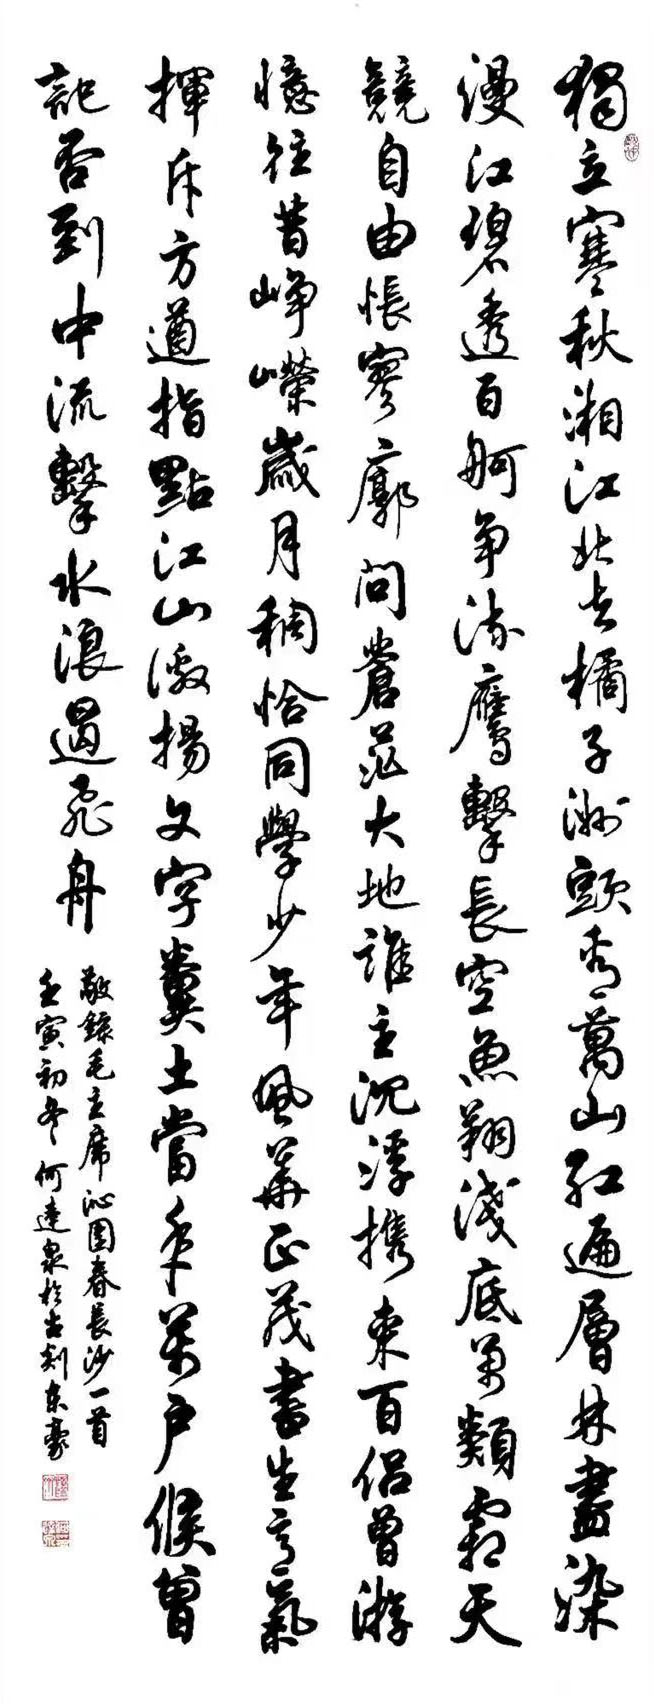 獨立寒秋湘江北去橘子洲頭看萬山紅遍層林盡染
漫江碧透百舸争流鷹擊長空魚翔淺底萬類霜天
競自由悵寥廓問蒼茫大地誰主沉浮携來百侣曾游
憶往昔崢嶸歲月稠恰同學少年風華正茂書生意氣
揮斥方遒指點江山激揚文字糞土當年萬户侯曾
記否到中流擊水浪遏飛舟
敬録毛主席沁園春長沙一首
壬寅初冬何達泉於古剡東豪